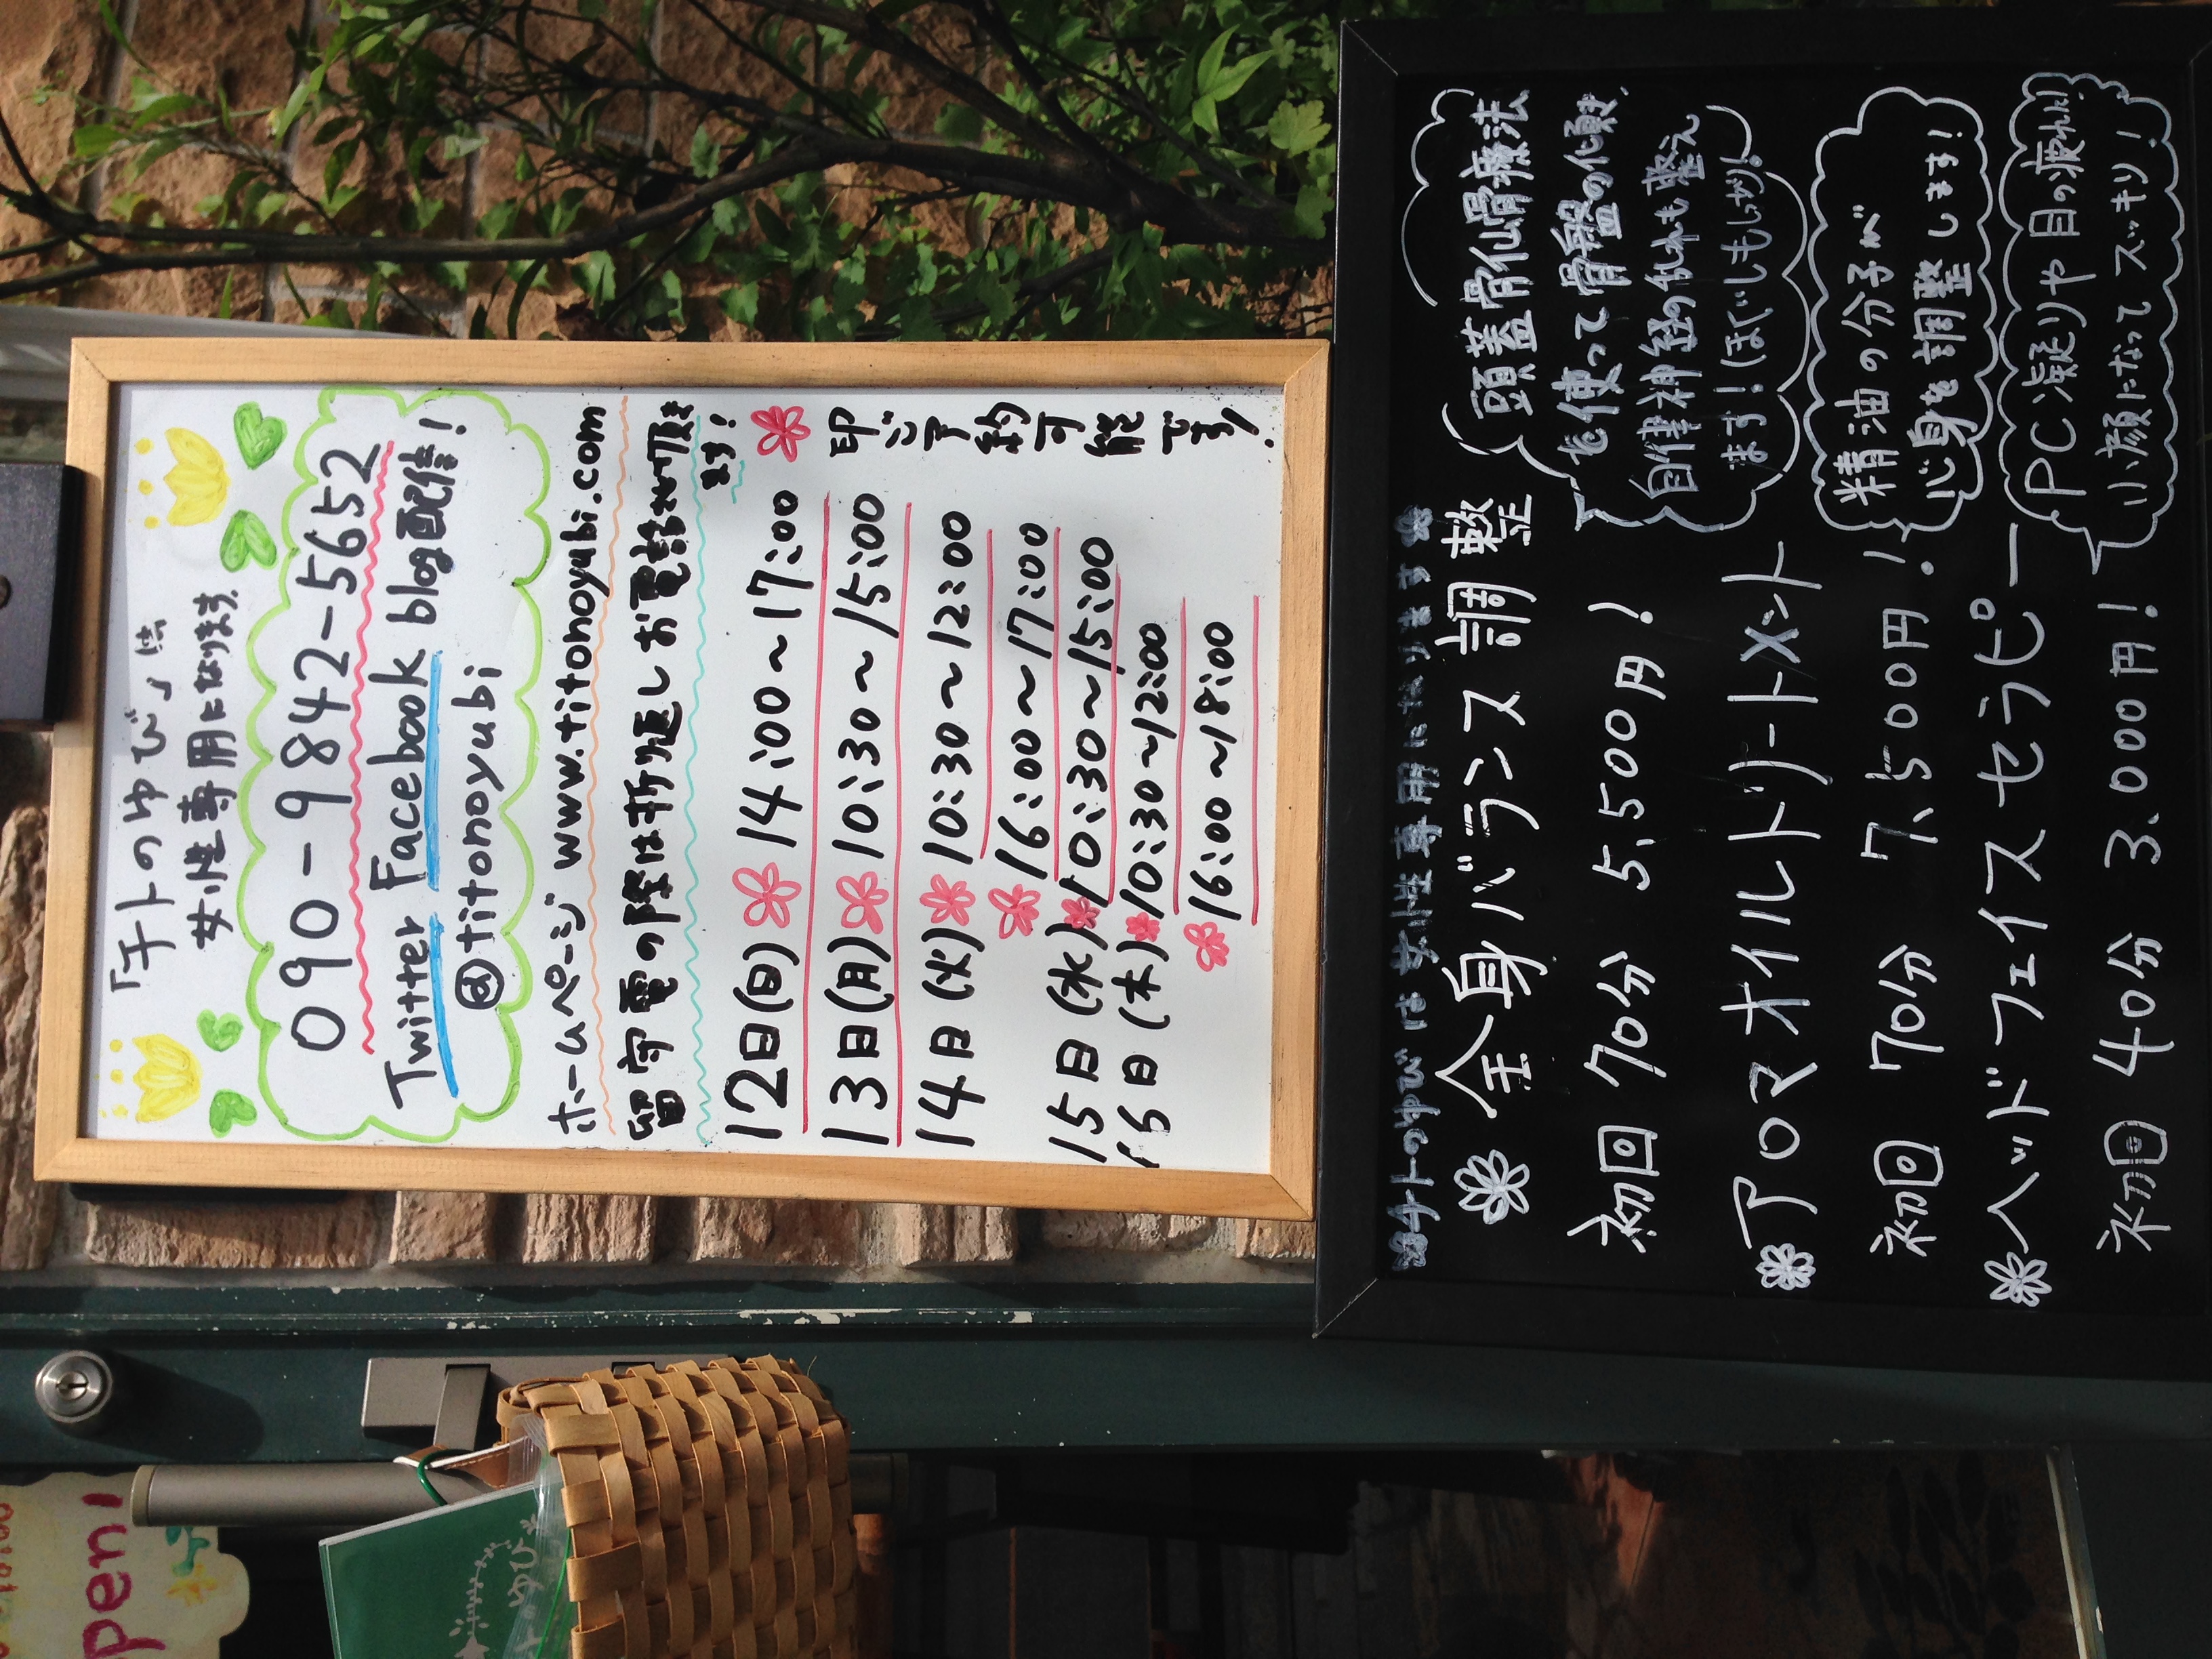 「チトのゆび」は
女性専用になります
090-9842-5652
Twitter Facebook blog配信!
@titonoyubi
ホームページ www.titonoyubi.com
留守電の際は折り返しお電話かけ
ます!
12日(日) 14:00〜17:00
13日(月) 10:30〜15:00
14日(火) 10:30〜12:00
16:00〜17:00
15日(水) 10:30〜15:00
16日(木) 10:30〜12:00
16:00〜18:00
印ご予約可能です!
チトのゆびは女性専用になります
全身バランス調整
初回 70分 5,500円!
頭蓋骨仙骨療法
を使って骨盤の傾き、
自律神経の乱れも整え
ます!(ほぐしもしっかり!)
アロマオイルトリートメント
初回 70分 7,500円!
精油の分子が
心身を調整します!
ヘッドフェイスセラピー
初回 40分 3,000円!
PC凝りや目の疲れに!
小顔になってスッキリ!
pen!